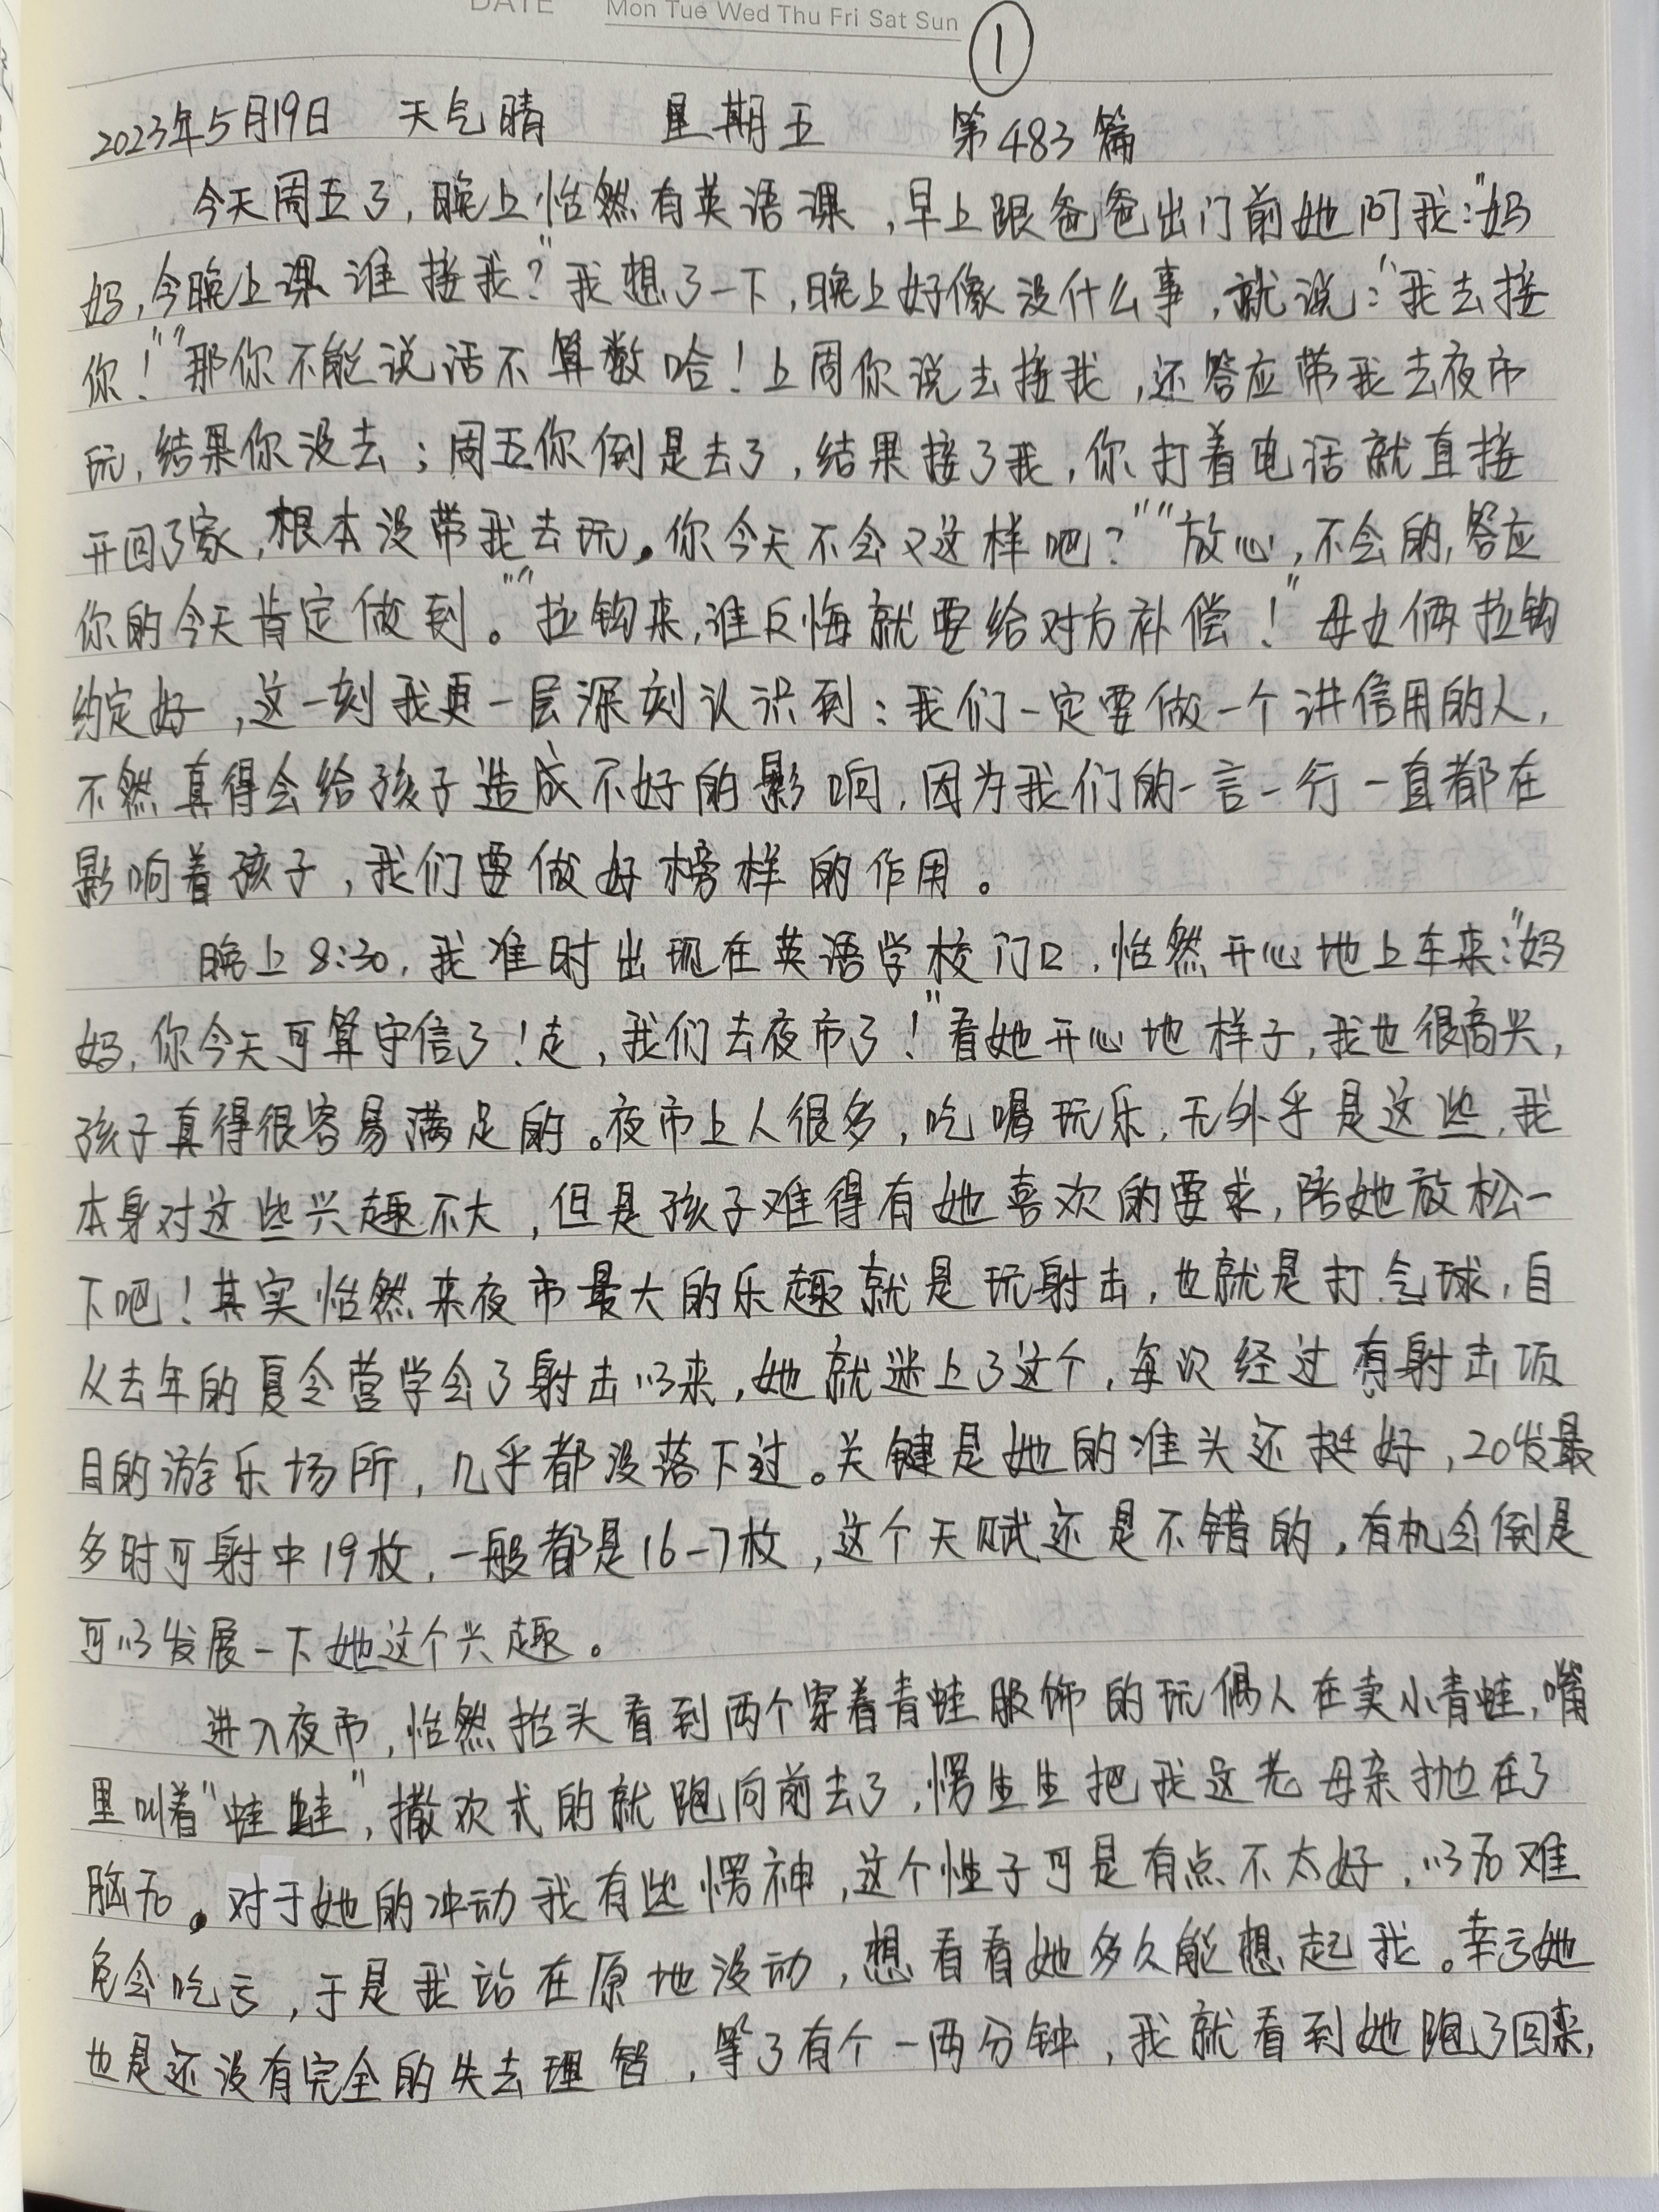 DATE Mon Tue Wed Thu Fri Sat Sun ①
2023年5月19日 天气晴 星期五 第483篇
今天周五了,晚上怡然有英语课,早上跟爸爸出门前她问我:"妈
妈,今晚上课谁接我?"我想了一下,晚上好像没什么事,就说:"我去接
你!""那你不能说话不算数哈!上周你说去接我,还答应带我去夜市
玩,结果你没去;周五你倒是去了,结果接了我,你打着电话就直接
开回了家,根本没带我去玩。你今天不会又这样吧?""放心,不会的,答应
你的今天肯定做到。""拉钩来,谁反悔就要给对方补偿!"母女俩拉钩
约定好,这一刻我更一层深刻认识到:我们一定要做一个讲信用的人,
不然真得会给孩子造成不好的影响,因为我们的一言一行一直都在
影响着孩子,我们要做好榜样的作用。
晚上8:30,我准时出现在英语学校门口,怡然开心地上车来:"妈
妈,你今天可算守信了!走,我们去夜市了!"看她开心地样子,我也很高兴,
孩子真得很容易满足的。夜市上人很多,吃喝玩乐,无外乎是这些,我
本身对这些兴趣不大,但是孩子难得有她喜欢的要求,陪她放松一
下吧!其实怡然来夜市最大的乐趣就是玩射击,也就是打气球,自
从去年的夏令营学会了射击以来,她就迷上了这个,每次经过有射击项
目的游乐场所,几乎都没落下过。关键是她的准头还挺好,20发最
多时可射中19枚,一般都是16-7枚,这个天赋还是不错的,有机会倒是
可以发展一下她这个兴趣。
进入夜市,怡然抬头看到两个穿着青蛙服饰的玩偶人在卖小青蛙,嘴
里叫着"蛙蛙",撒欢式的就跑向前去了,愣生生把我这老母亲抛在了
脑后。对于她的冲动我有些愣神,这个性子可是有点不太好,以后难
免会吃亏,于是我站在原地没动,想看看她多久能想起我。幸亏她
也是还没有完全的失去理智,等了有个一两分钟,我就看到她跑了回来,